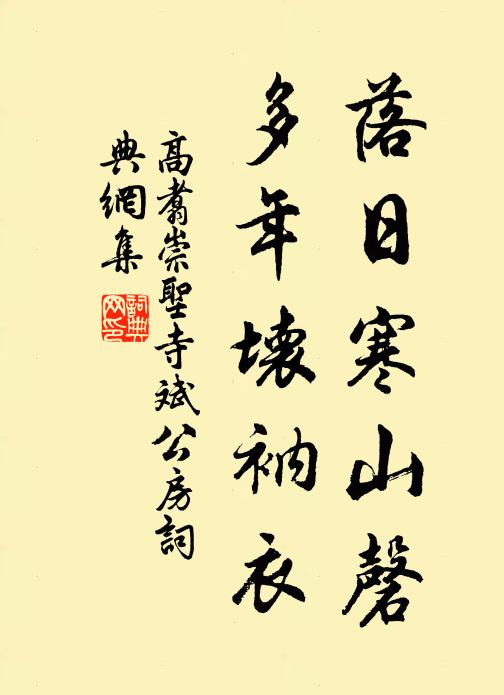 落日寒山磬
多年壞衲衣
高翥崇聖寺斌公房詞
典網集
詞典
网印